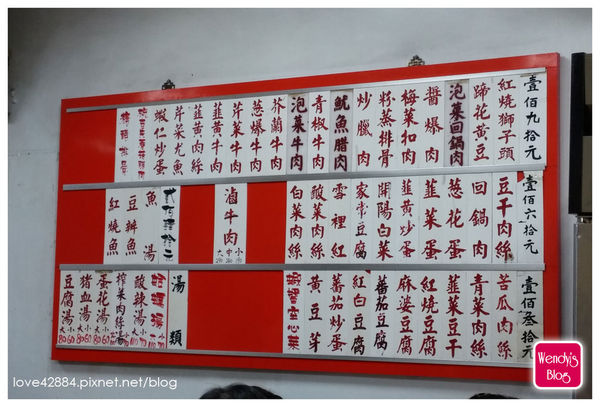 壹佰九拾元
紅燒獅子頭
蹄花黃豆
泡菜回鍋肉
醬爆肉
梅菜扣肉
粉蒸排骨
炒臘肉
魷魚腊肉
青椒牛肉
泡菜牛肉
芥蘭牛肉
蔥爆牛肉
芹菜牛肉
韮黃牛肉
韮黃肉絲
芹菜尤魚
蝦仁炒蛋
壹佰六拾元
豆干肉絲
回鍋肉
蔥花蛋
韮菜蛋
韮黃炒蛋
開陽白菜
家常豆腐
雪裡紅
酸菜肉絲
白菜肉絲
滷牛肉
大 中 小
魚湯
豆瓣魚
紅燒魚
壹佰叁拾元
苦瓜肉絲
青菜肉絲
韮菜豆干
紅燒豆腐
麻婆豆腐
蕃茄豆腐
紅白豆腐
蕃茄炒蛋
黃豆芽
湯類
酸辣湯
榨菜肉絲湯
蛋花湯 大80 小60
豬血湯 大80 小60
豆腐湯 大80 小60
Wendy's Blog
love42884.pixnet.net/blog